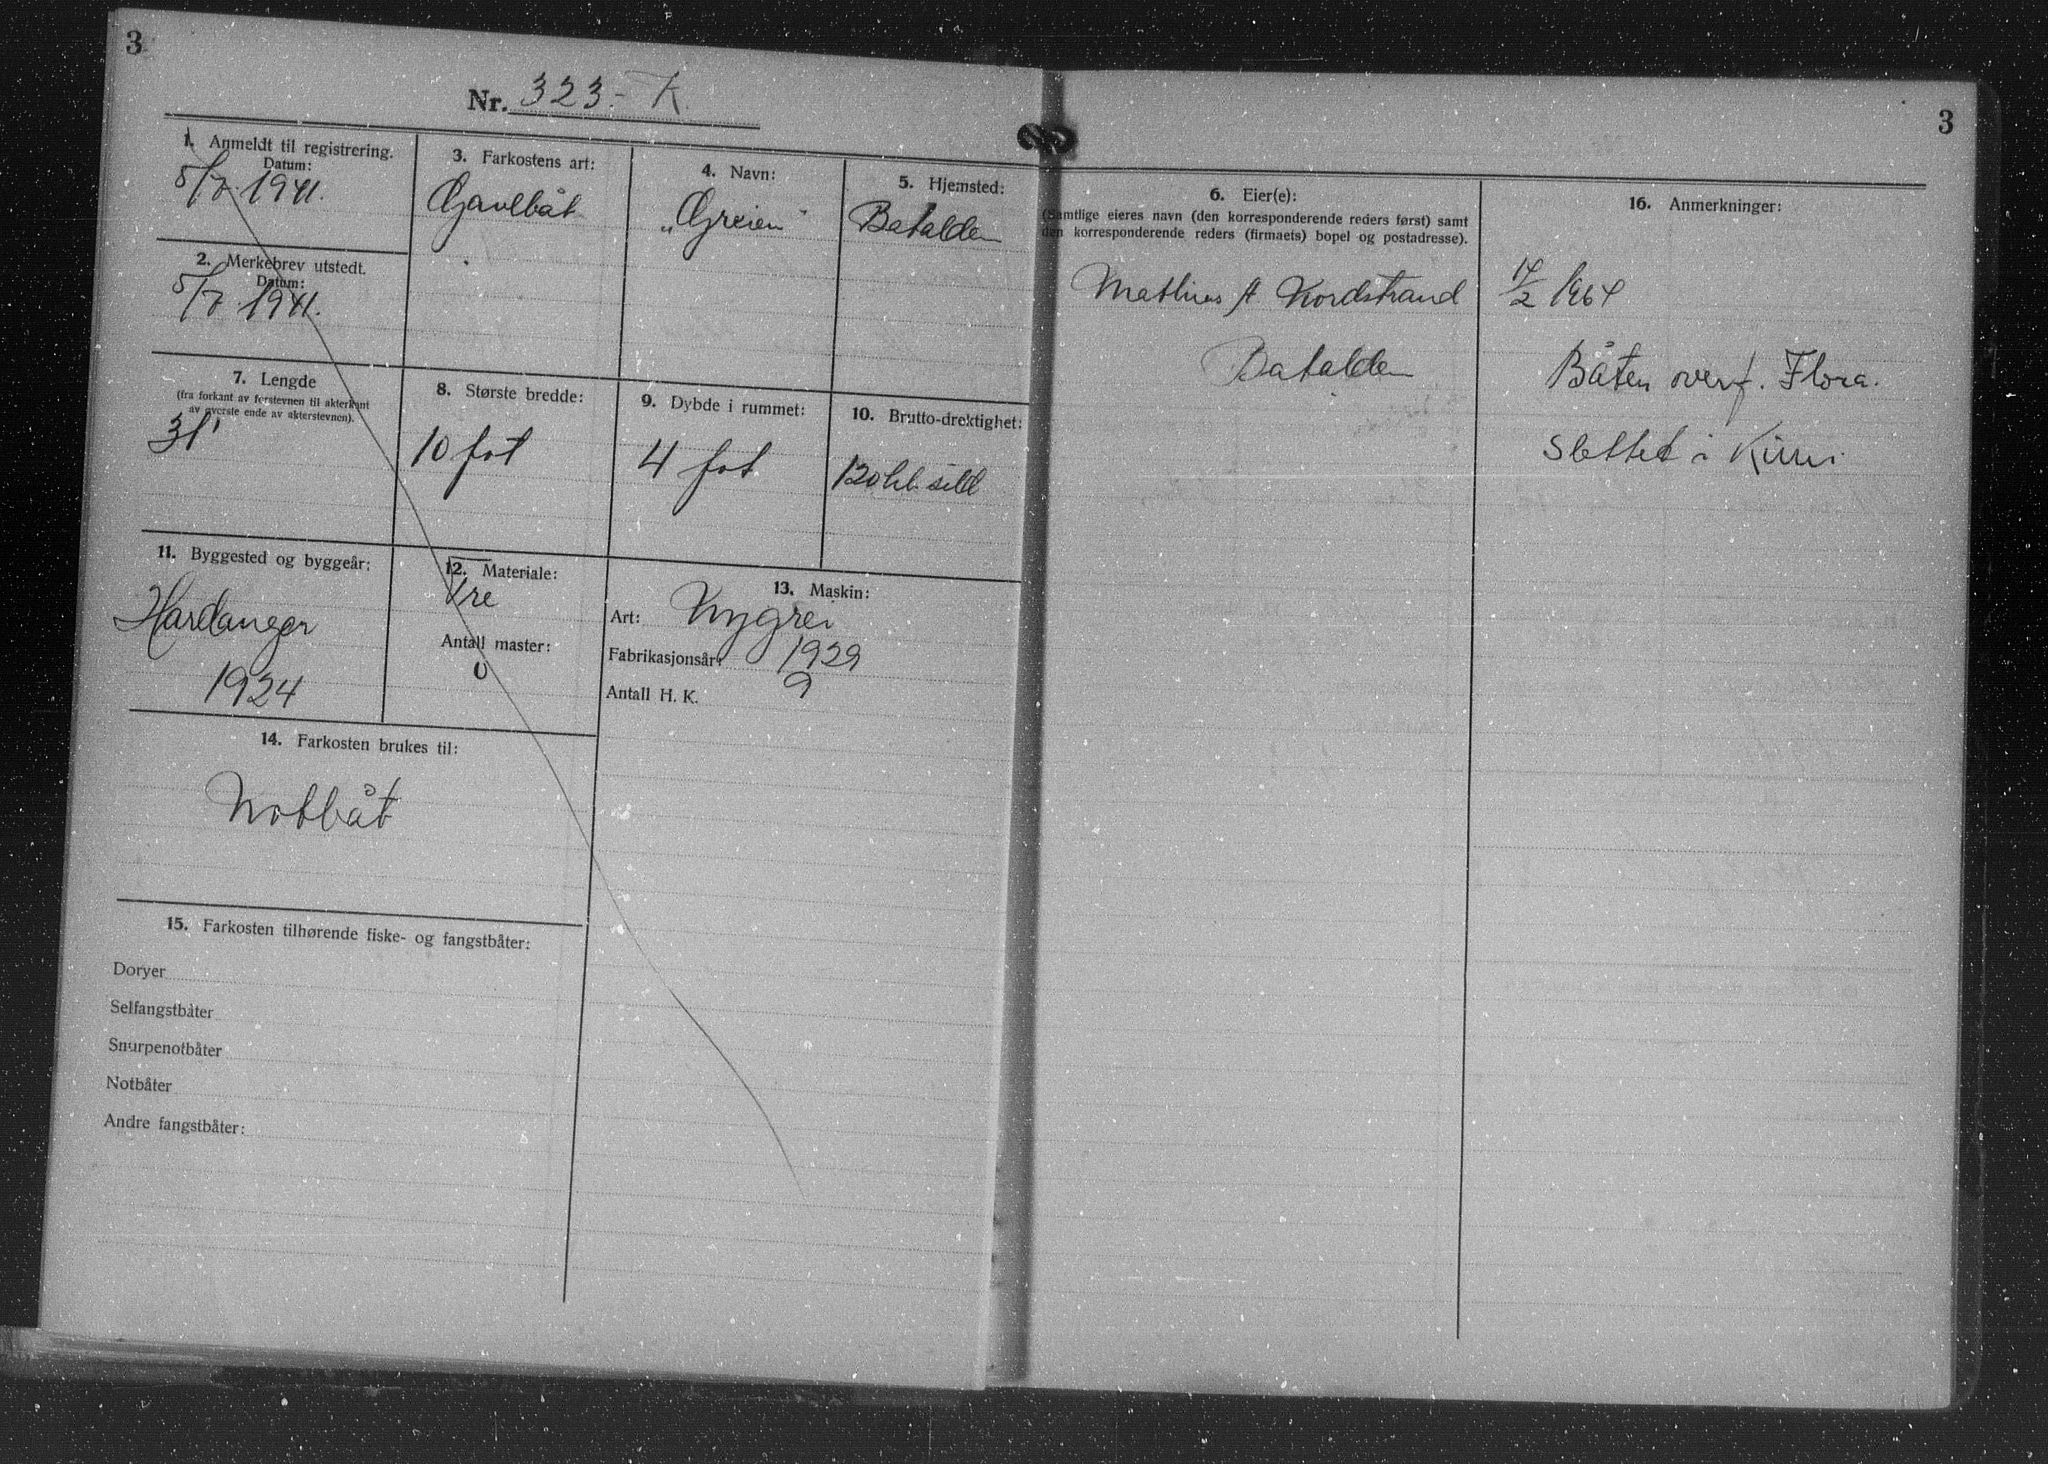 3
Nr. 323.- K.
1. Anmeldt til registrering.
Datum:
5/7 1941.
2. Merkebrev utstedt.
Datum:
5/7 1941.
3. Farkostens art:
Gavlbåt
4. Navn:
„Greien"
5. Hjemsted:
Batalden
7. Lengde
(fra forkant av forstevnen til akterkant
av øverste ende av akterstevnen).
31'
8. Største bredde:
10 fot
9. Dybde i rummet:
4 fot
10. Brutto-drektighet:
120 hl. sild
11. Byggested og byggeår:
Hardanger
1924
12. Materiale:
Tre
Antall master:
0
13. Maskin:
Art: Nygrei
Fabrikasjonsår: 1929
Antall H. K. 9
14. Farkosten brukes til:
Notbåt
15. Farkosten tilhørende fiske- og fangstbåter:
Doryer
Selfangstbåter
Snurpenotbåter
Notbåter
Andre fangstbåter:
3
6. Eier(e):
(Samtlige eieres navn (den korresponderende reders først) samt
den korresponderende reders (firmaets) bopel og postadresse).
Mathias A Nordstrand
Batalden
16. Anmerkninger:
17/2 1964
Båten overf. Flora.
Slettet i Kinn